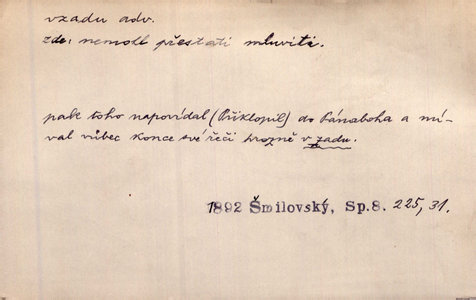 vzadu adv.
zde: nemohl přestati mluviti.
pak toho napovídal (Přiklopil) do Pánaboha a mí-
val vůbec konce své řeči hrozně v zadu.
1892 Šmilovský, Sp.8. 225, 31.